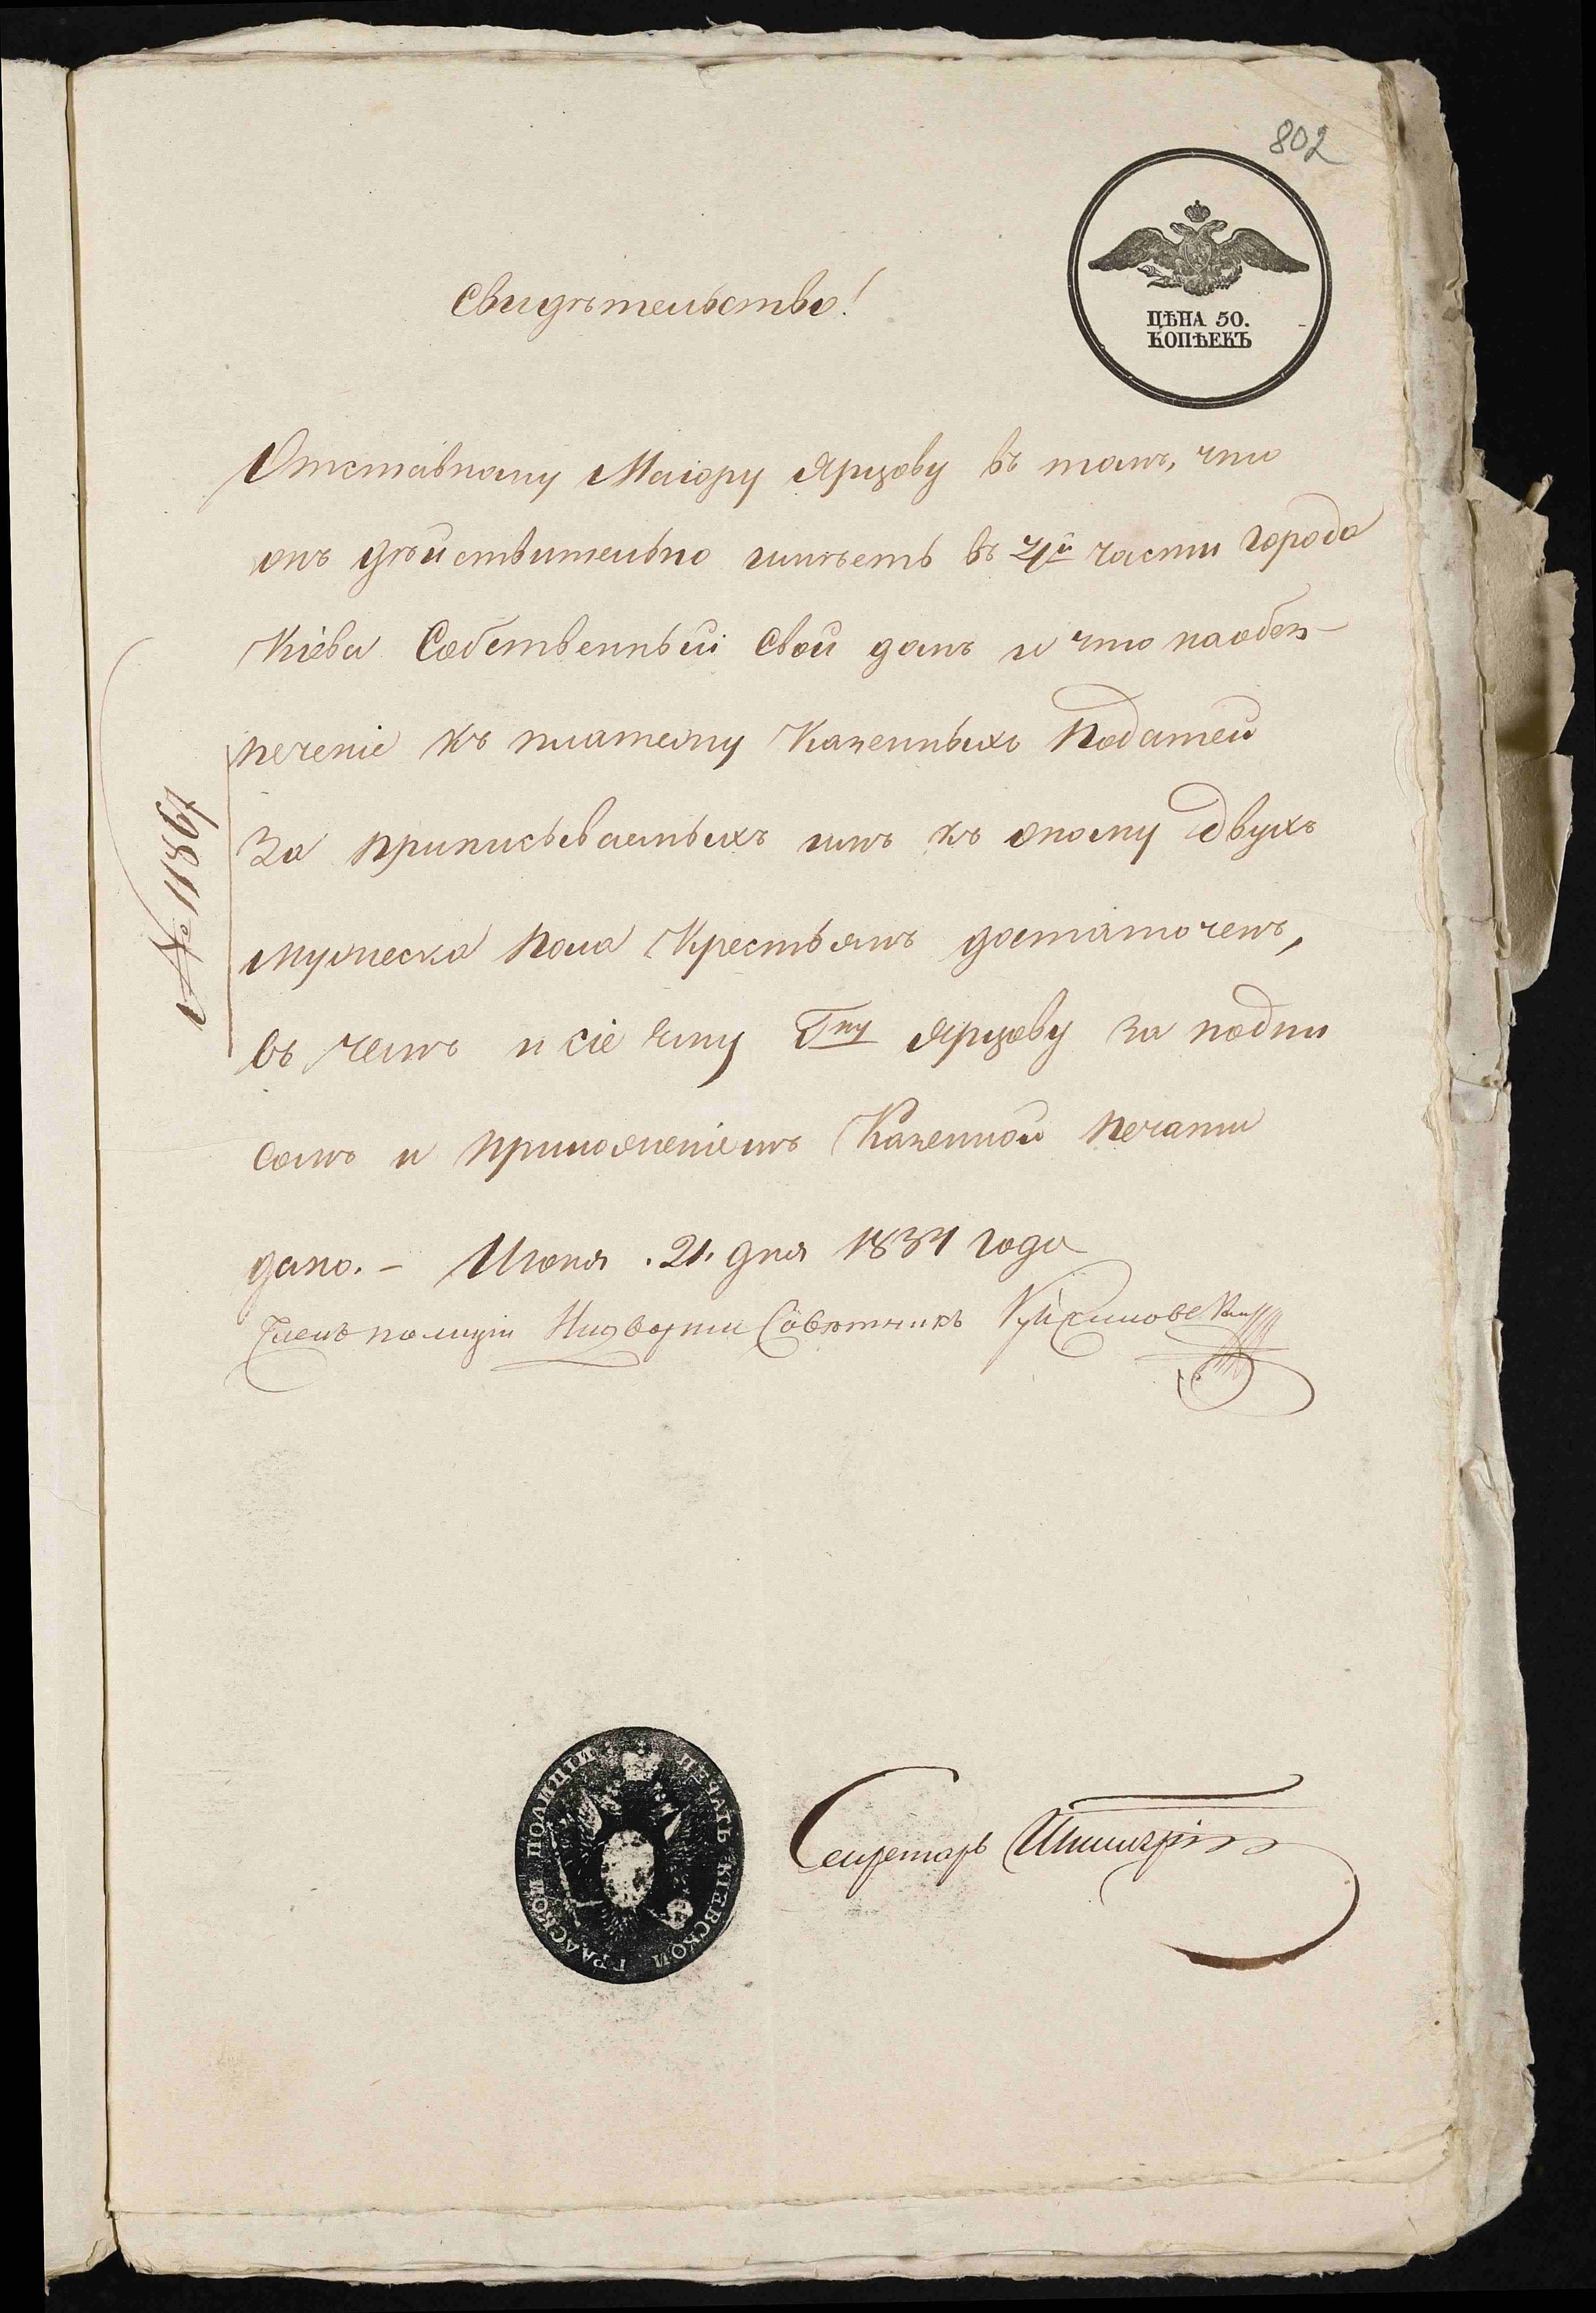 802
ЦѢНА 50.
КОПѢЕКЪ
Свидѣтельство!
Отставному Маіору Ярцову въ томъ, что
онъ дѣйствительно имѣетъ въ 4й части города
Кіева Собственный свой домъ и что наобез-
печеніе къ платежу Казенныхъ Податей
За приписываемыхъ имъ къ оному двухъ
мужеска Пола Крестьянъ достаточенъ,
въ чемъ и сіе ему Гну Ярцову за подпи
сомъ и приложеніемъ Казенной Печати
дано. - Июня .21. дня 1834 года
Членъ полиціи Надворни Совѣтникъ
№ 11867
ПЕЧАТЬ КІЕВСКОЙ ГРАДСКОЙ ПОЛИЦІИ
Секретарь